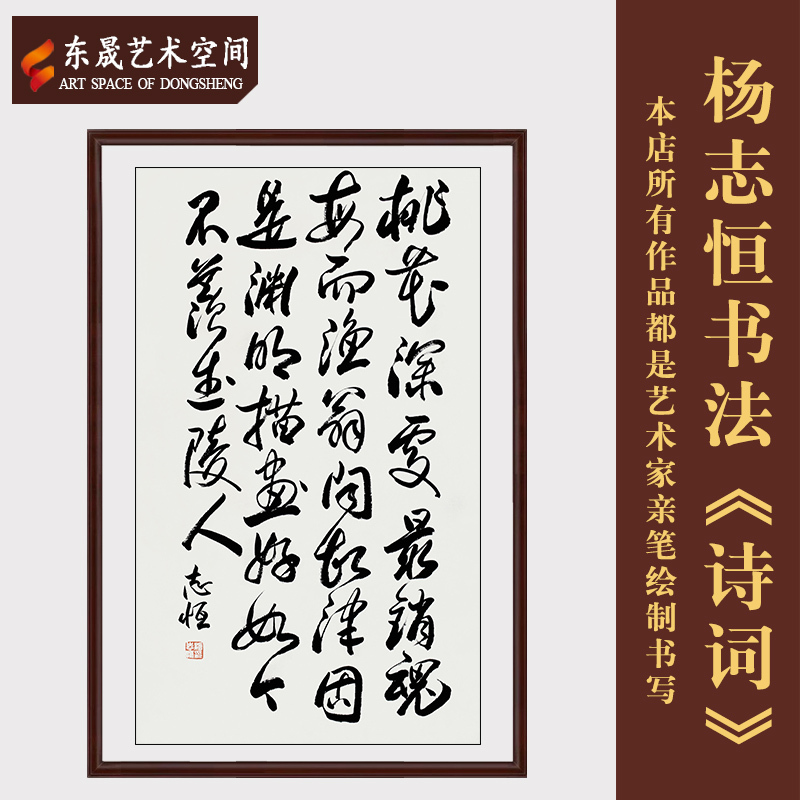 东晟艺术空间
ART SPACE OF DONGSHENG
桃花深處最銷魂
每向渔翁问故津因
是渊明描畫好如今
不羡武陵人
志恒
杨志恒书法《诗词》
本店所有作品都是艺术家亲笔绘制书写